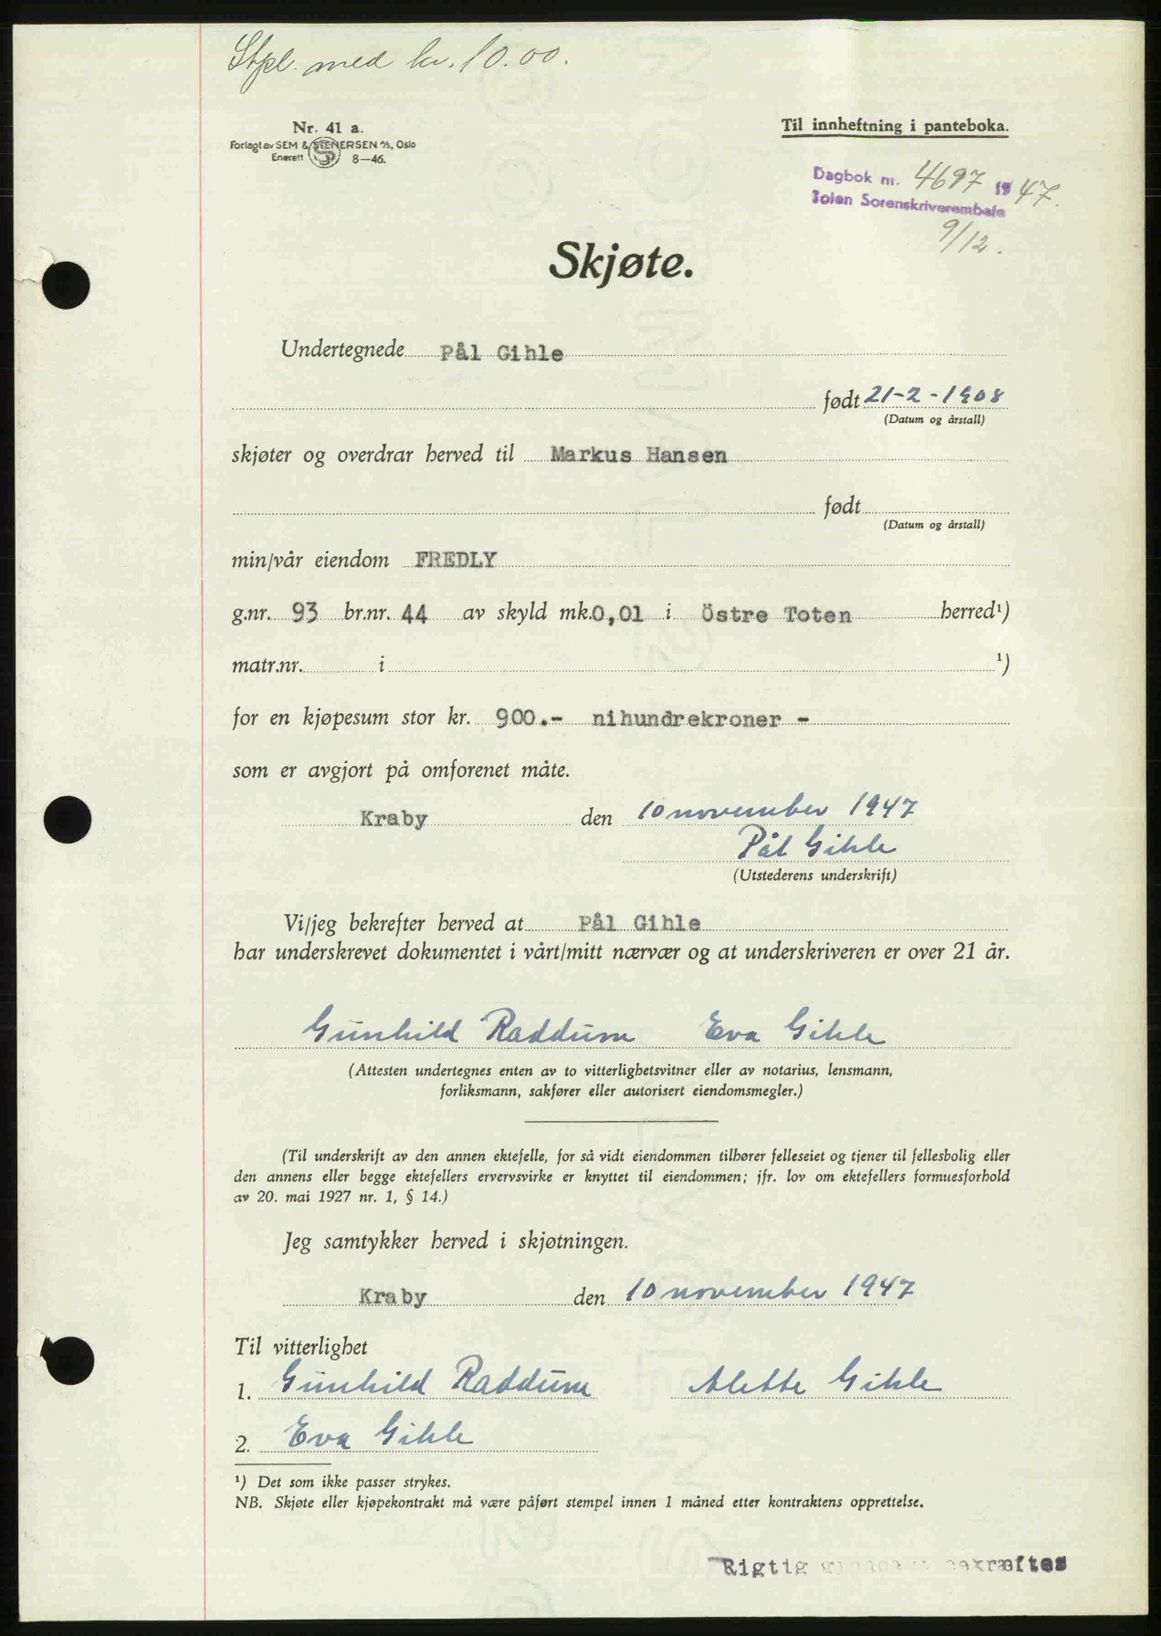 Stpl. med kr. 10.00.
Nr. 41 a.
Forlagt av SEM & STENERSEN A/S, Oslo
Enerett 8—46.
Til innheftning i panteboka.
Dagbok nr. 4697 19 47.
Toten Sorenskriverembete
9/12.
Skjøte.
Undertegnede Pål Gihle
født 21-2-1908
(Datum og årstall)
skjøter og overdrar herved til Markus Hansen
født
(Datum og årstall)
min/vår eiendom FREDLY
g.nr. 93 br.nr. 44 av skyld mk. 0,01 i Östre Toten herred¹)
matr.nr. i ¹)
for en kjøpesum stor kr. 900.- nihundrekroner -
som er avgjort på omforenet måte.
Kraby den 10 november 1947
Pål Gihle
(Utstederens underskrift)
Vi/jeg bekrefter herved at Pål Gihle
har underskrevet dokumentet i vårt/mitt nærvær og at underskriveren er over 21 år.
Gunhild Raddum Eva Gihle
(Attesten undertegnes enten av to vitterlighetsvitner eller av notarius, lensmann,
forliksmann, sakfører eller autorisert eiendomsmegler.)
(Til underskrift av den annen ektefelle, for så vidt eiendommen tilhører felleseiet og tjener til fellesbolig eller
den annens eller begge ektefellers ervervsvirke er knyttet til eiendommen; jfr. lov om ektefellers formuesforhold
av 20. mai 1927 nr. 1, § 14.)
Jeg samtykker herved i skjøtningen.
Kraby den 10 november 1947
Til vitterlighet
1. Gunhild Raddum Alette Gihle
2. Eva Gihle
¹) Det som ikke passer strykes.
NB. Skjøte eller kjøpekontrakt må være påført stempel innen 1 måned etter kontraktens opprettelse.
Rigtig bekræftes